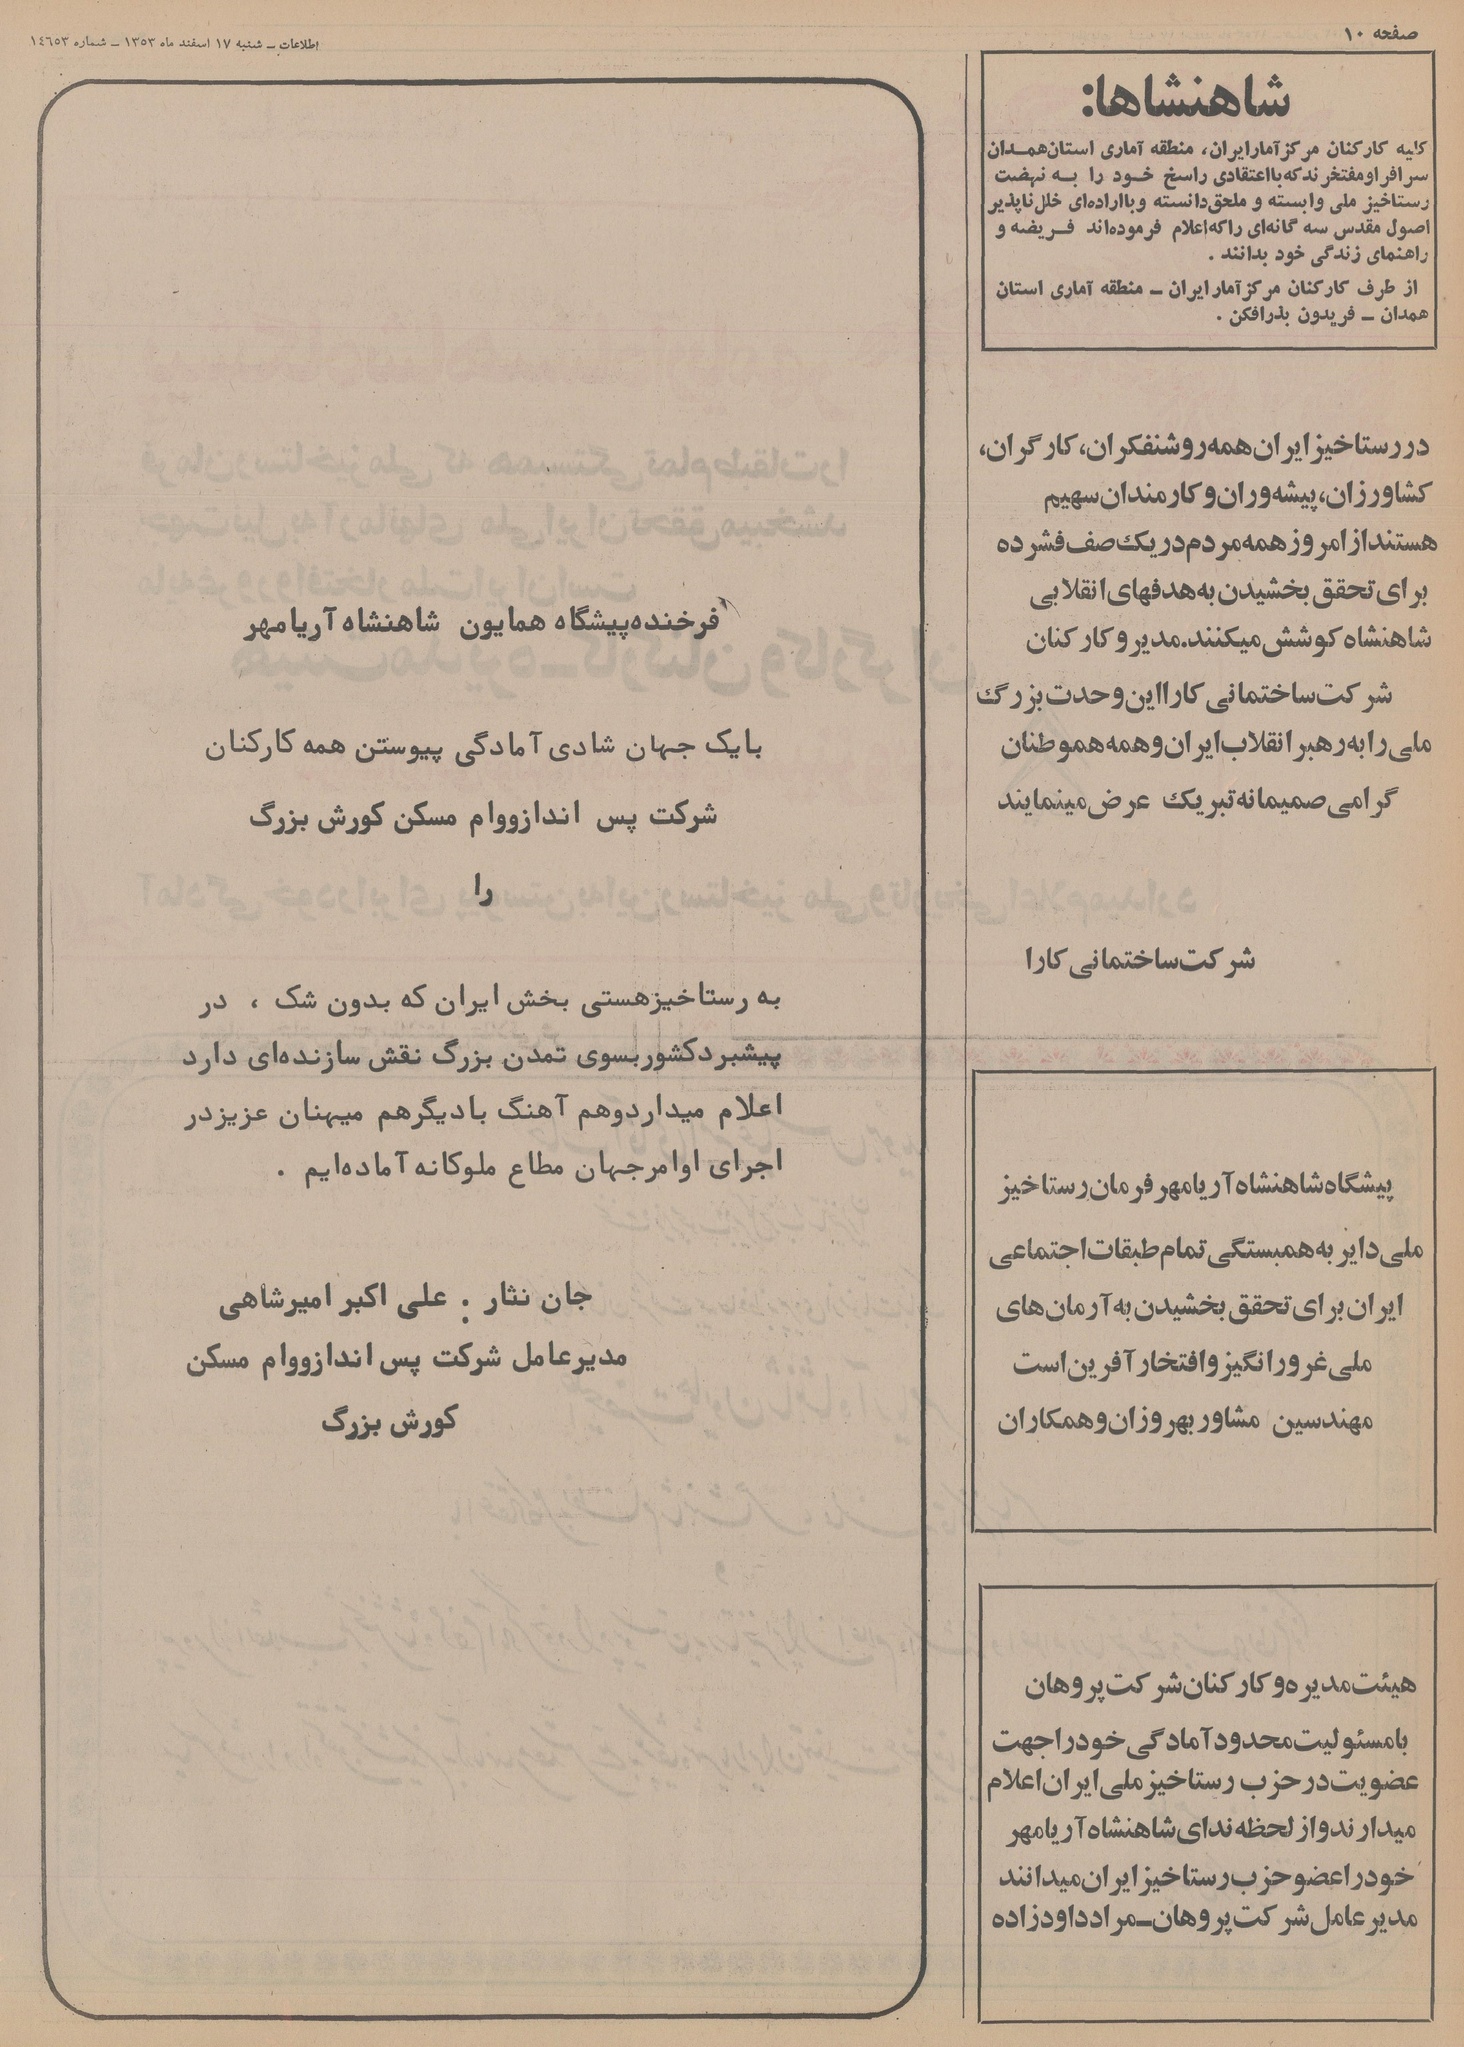 صفحه ۱۰
اطلاعات ـ شنبه ۱۷ اسفند ماه ۱۳۵۳ ـ شماره ۱۴۶۵۳
شاهنشاها:
کلیه کارکنان مرکز آمار ایران، منطقه آماری استان همدان
سرافراز و مفتخرند که با اعتقادی راسخ خود را به نهضت
رستاخیز ملی وابسته و ملحق دانسته و با اراده‌ای خلل ناپذیر
اصول مقدس سه گانه‌ای را که اعلام فرموده‌اند فریضه و
راهنمای زندگی خود بدانند .
از طرف کارکنان مرکز آمار ایران ـ منطقه آماری استان
همدان ـ فریدون بذرافکن .
در رستاخیز ایران همه روشنفکران، کارگران،
کشاورزان، پیشه‌وران و کارمندان سهیم
هستند از امروز همه مردم در یک صف فشرده
برای تحقق بخشیدن به هدفهای انقلابی
شاهنشاه کوشش میکنند. مدیر و کارکنان
شرکت ساختمانی کارا این وحدت بزرگ
ملی را به رهبر انقلاب ایران و همه هموطنان
گرامی صمیمانه تبریک عرض مینمایند
شرکت ساختمانی کارا
پیشگاه شاهنشاه آریامهر فرمان رستاخیز
ملی دایر به همبستگی تمام طبقات اجتماعی
ایران برای تحقق بخشیدن به آرمان‌های
ملی غرورانگیز و افتخار آفرین است
مهندسین مشاور بهروزان و همکاران
هیئت مدیره و کارکنان شرکت پروهان
با مسئولیت محدود آمادگی خود را جهت
عضویت در حزب رستاخیز ملی ایران اعلام
میدارند و از لحظه ندای شاهنشاه آریامهر
خود را عضو حزب رستاخیز ایران میدانند
مدیر عامل شرکت پروهان ـ مراد داودزاده
فرخنده پیشگاه همایون شاهنشاه آریامهر
بایک جهان شادی آمادگی پیوستن همه کارکنان
شرکت پس انداز ووام مسکن کورش بزرگ
را
به رستاخیز هستی بخش ایران که بدون شک ، در
پیشبرد کشور بسوی تمدن بزرگ نقش سازنده‌ای دارد
اعلام میدارد و هم آهنگ با دیگر هم میهنان عزیز در
اجرای اوامر جهان مطاع ملوکانه آماده‌ایم .
جان نثار : علی اکبر امیرشاهی
مدیر عامل شرکت پس انداز ووام مسکن
کورش بزرگ